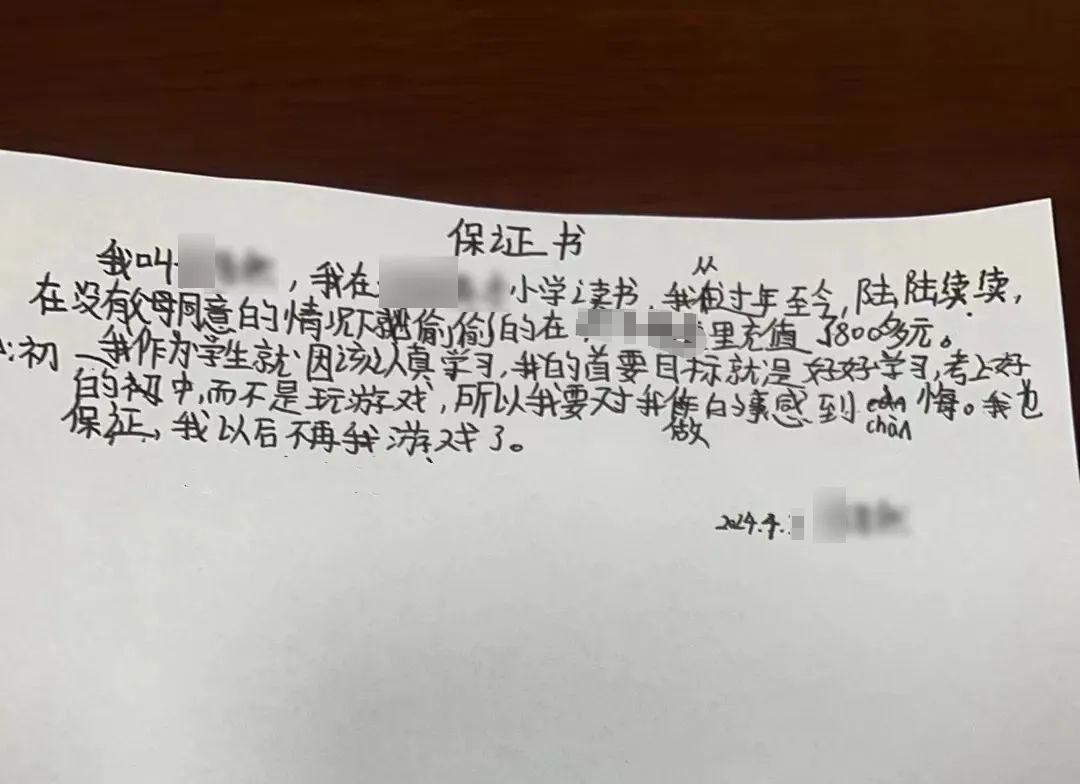 保证书
我叫,我在小学读书,我从过年至今,陆陆续续,
在没有父母同意的情况下偷偷的在里充值了800多元。
初一我作为学生就因该认真学习,我的首要目标就是好好学习,考上好
的初中,而不是玩游戏,所以我要对我做的事感到chàn悔。我也
保证,我以后不再我游戏了。
2024.4.